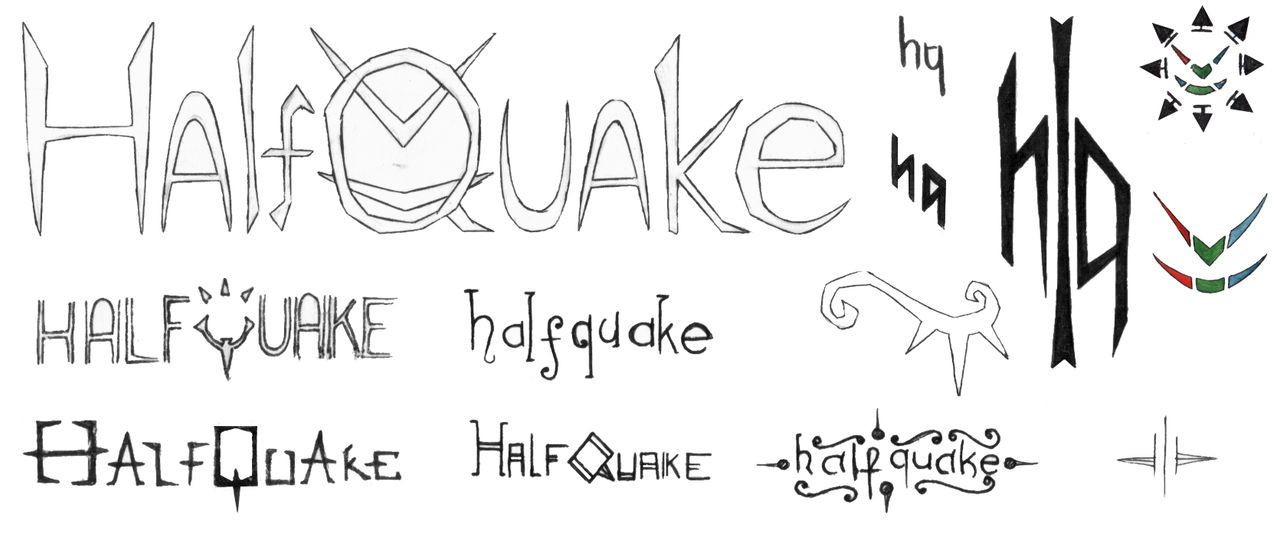 HalfQuake
hq
hq
hq
HALFQUAKE
halfquake
HALFQUAKE
HALFQUAKE
halfquake